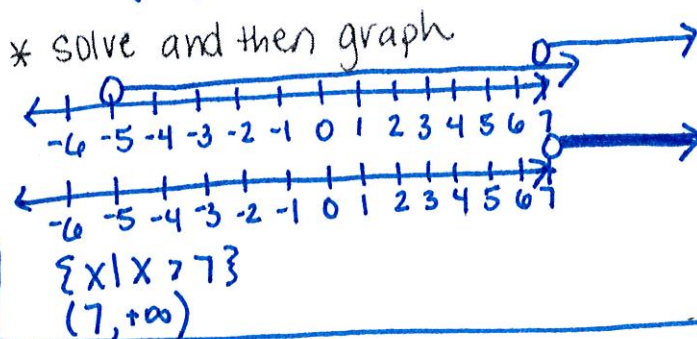 * solve and then graph
-6 -5 -4 -3 -2 -1 0 1 2 3 4 5 6 7
-6 -5 -4 -3 -2 -1 0 1 2 3 4 5 6 7
{x|x>7}
(7,+∞)